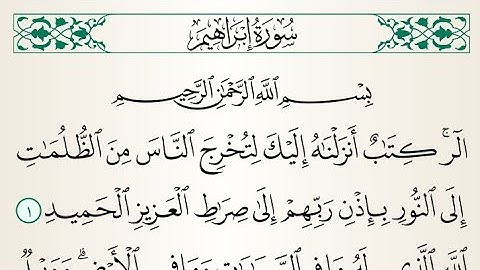 سُورَةُ إِبْرَاهِيم
بِسْمِ ٱللَّهِ ٱلرَّحْمَٰنِ ٱلرَّحِيمِ
الٓر ۚ كِتَٰبٌ أَنزَلْنَٰهُ إِلَيْكَ لِتُخْرِجَ ٱلنَّاسَ مِنَ ٱلظُّلُمَٰتِ
إِلَى ٱلنُّورِ بِإِذْنِ رَبِّهِمْ إِلَىٰ صِرَٰطِ ٱلْعَزِيزِ ٱلْحَمِيدِ ١